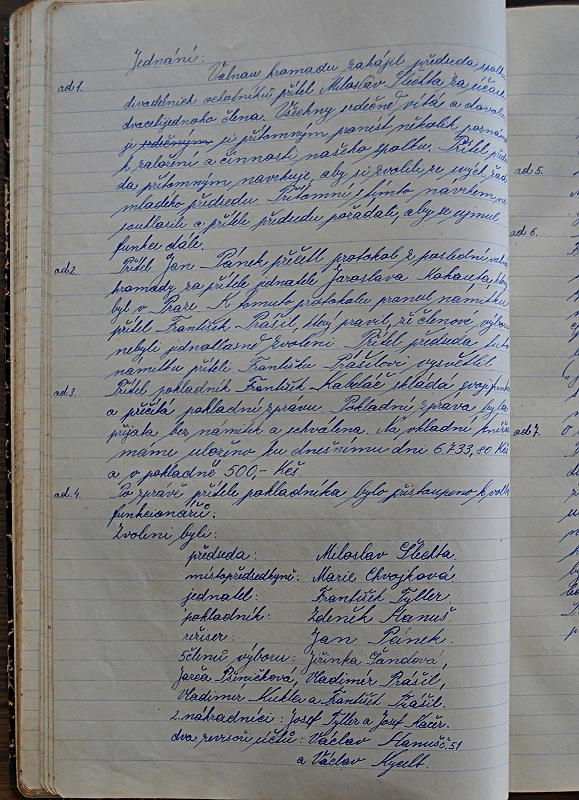 Jednání:
ad 1. Valnou hromadu zahájil předseda spolku
divadelních ochotníků přítel Miloslav Šlechta za účasti
dvacetijednoho člena. Všechny srdečně vítá a dovolu
je srdečným je přítomným pronést několik poznámek
k založení a činnosti našeho spolku. Přítel předse
da přítomným navrhuje, aby si zvolili ze svých řad
mladého předsedu. Přítomní s tímto návrhem ne
souhlasili a přítele předsedu požádali, aby se ujmul
funkce dále.
ad 2. Přítel Jan Pánek přečetl protokol z poslední valné
hromady za přítele jednatele Jaroslava Kohouta, který
byl v Praze. K tomuto protokolu pronesl námitku
přítel František Prášil, který pravil, že členové výboru
nebyli jednohlasně zvoleni. Přítel předseda tuto
námitku příteli Františku Prášilovi vysvětlil.
ad 3. Přítel pokladník František Kabeláč skládá svoji funkci
a přečítá pokladní zprávu. Pokladní zpráva byla
přijata bez námitek a schválena. Na vkladní knížce
máme uloženo ku dnešnímu dni 6.733,80 Kčs
a v pokladně 500,- Kčs.
ad. 4. Po zprávě přítele pokladníka bylo přistoupeno k volbě
funkcionářů:
Zvoleni byli:
předseda: Miloslav Šlechta
místopředsedkyně: Marie Chvojková
jednatel: František Tyller
pokladník: Zdeněk Hanuš.
režiser: Jan Pánek.
5 členů výboru: Jiřinka Šandová,
Jarča Pšeničková, Vladimír Prášil,
Vladimír Kuhler a František Prášil.
2. náhradníci: Josef Tyller a Josef Kačer.
dva revisoři účtů: Václav Hanuš č. 51
a Václav Kyselt.
ad 5.
ad 6.
ad 7.